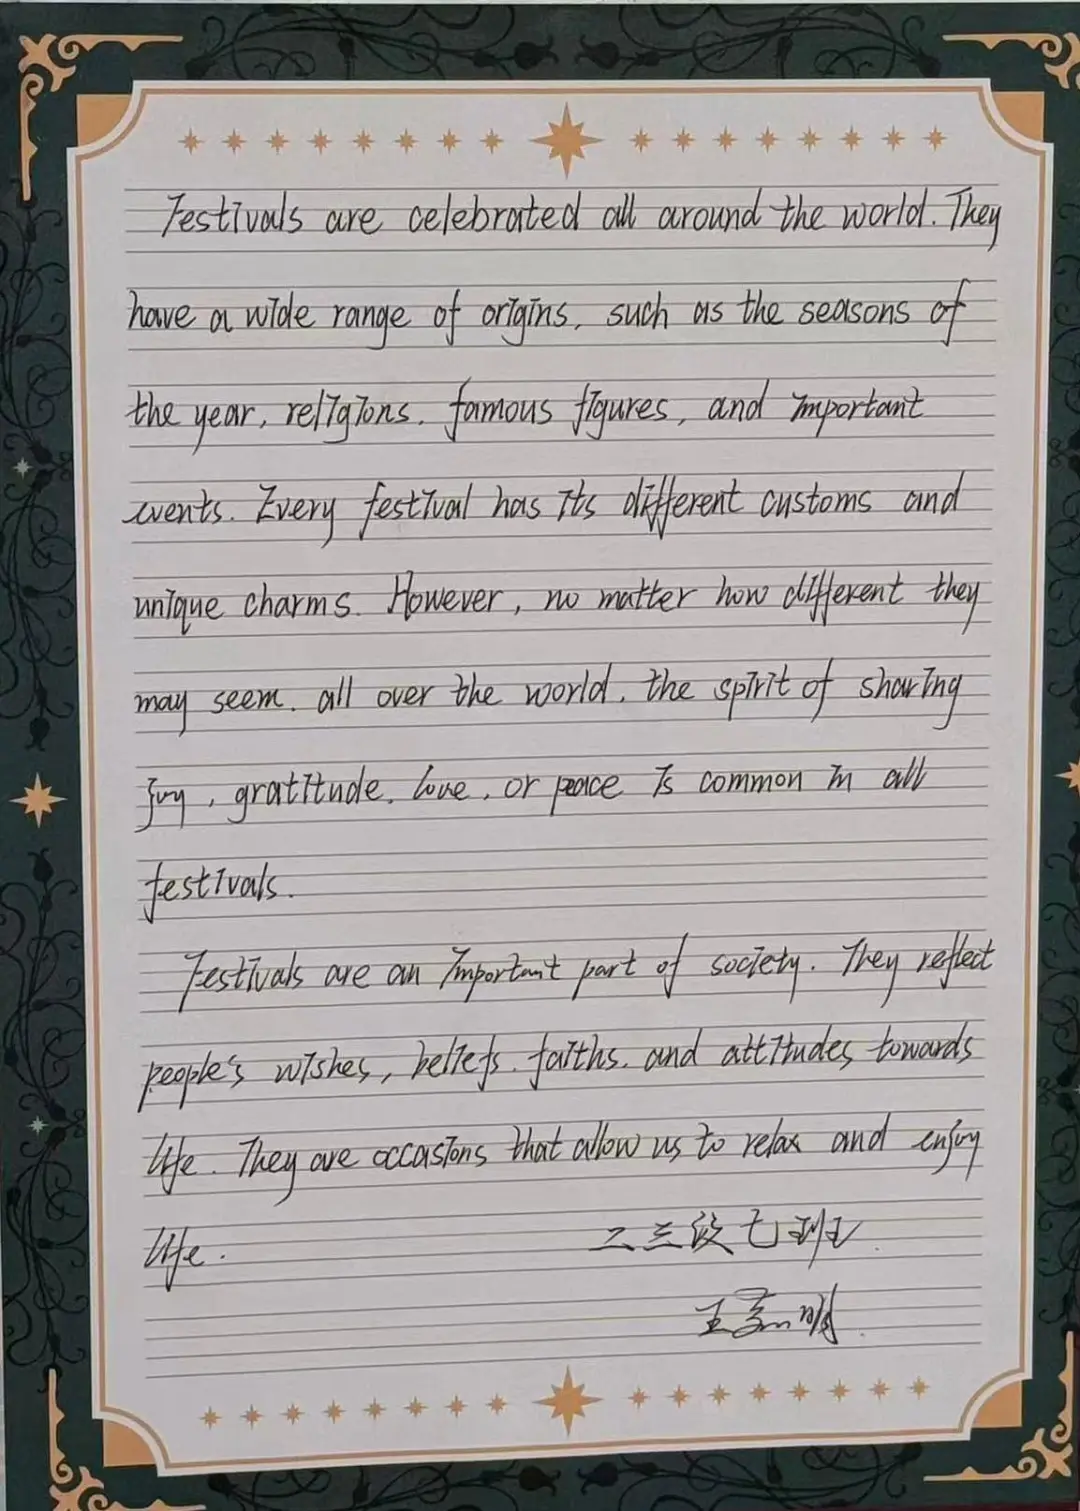 Festivals are celebrated all around the world. They
have a wide range of origins, such as the seasons of
the year, religions, famous figures, and important
events. Every festival has its different customs and
unique charms. However, no matter how different they
may seem, all over the world, the spirit of sharing
joy, gratitude, love, or peace is common in all
festivals.
Festivals are an important part of society. They reflect
people's wishes, beliefs, faiths, and attitudes towards
life. They are occasions that allow us to relax and enjoy
life.
二三级七班
王